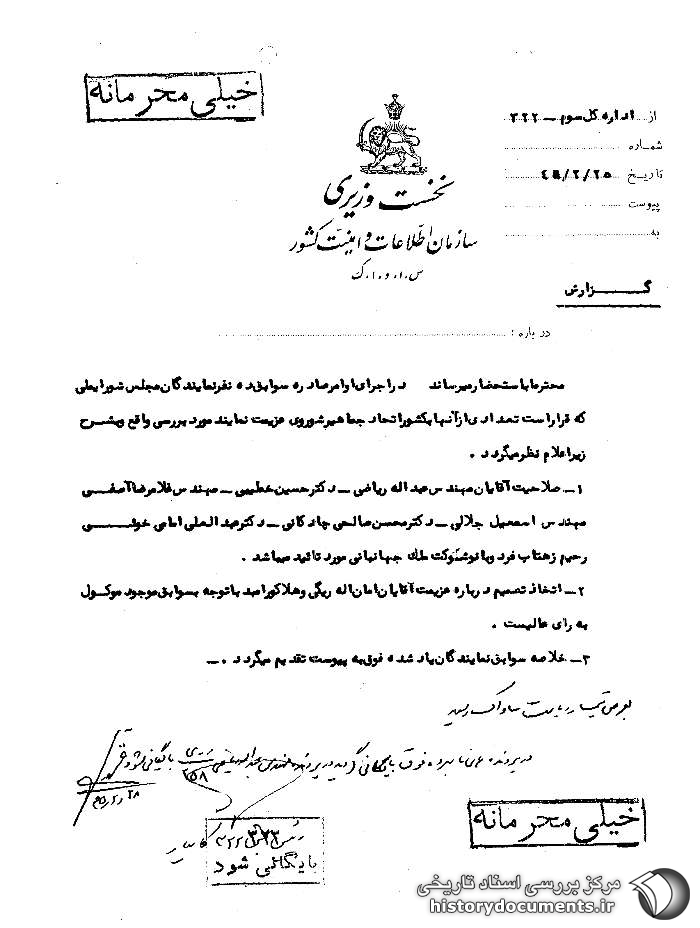 خیلی محرمانه
از اداره کل سوم ـ ۳۲۲
شماره
تاریخ ۴۵/۲/۲۵
پیوست
به
نخست وزیری
سازمان اطلاعات و امنیت کشور
س.ا.و.ا.ک
گزارش
درباره :
محترما باستحضار میرساند در اجرای اوامر صادره سوابق ده نفر نمایندگان مجلس شورایملی
که قرار است تعدادی از آنها بکشور اتحاد جماهیر شوروی عزیمت نمایند مورد بررسی واقع و بشرح
زیر اعلام نظر میگردد .
۱ـ صلاحیت آقایان مهندس عبداله ریاضی ـ دکتر حسین خطیبی ـ مهندس غلامرضا آصفی
مهندس اسمعیل جلالی ـ دکتر محسن صالحی چادکانی ـ دکتر عبدالعلی امامی خوئی
رحیم زهتاب فرد و بانو شوکت ملک جهانبانی مورد تائید میباشد .
۲ـ اتخاذ تصمیم درباره عزیمت آقایان امان اله ریگی و هلاکو رامبد با توجه بسوابق موجود موکول
به رای عالیست .
۳ـ خلاصه سوابق نمایندگان یاد شده فوق به پیوست تقدیم میگردد .ـ
بعرض تیمسار ریاست ساواک رسید
در پرونده نامبرده فوق بایگانی گردید در پرونده مهندس عبداله ریاضی بایگانی شود
۱۵۸
۴۵/۲/۲۸
۳۲۲
بایگانی شود
خیلی محرمانه
مرکز بررسی اسناد تاریخی
historydocuments.ir